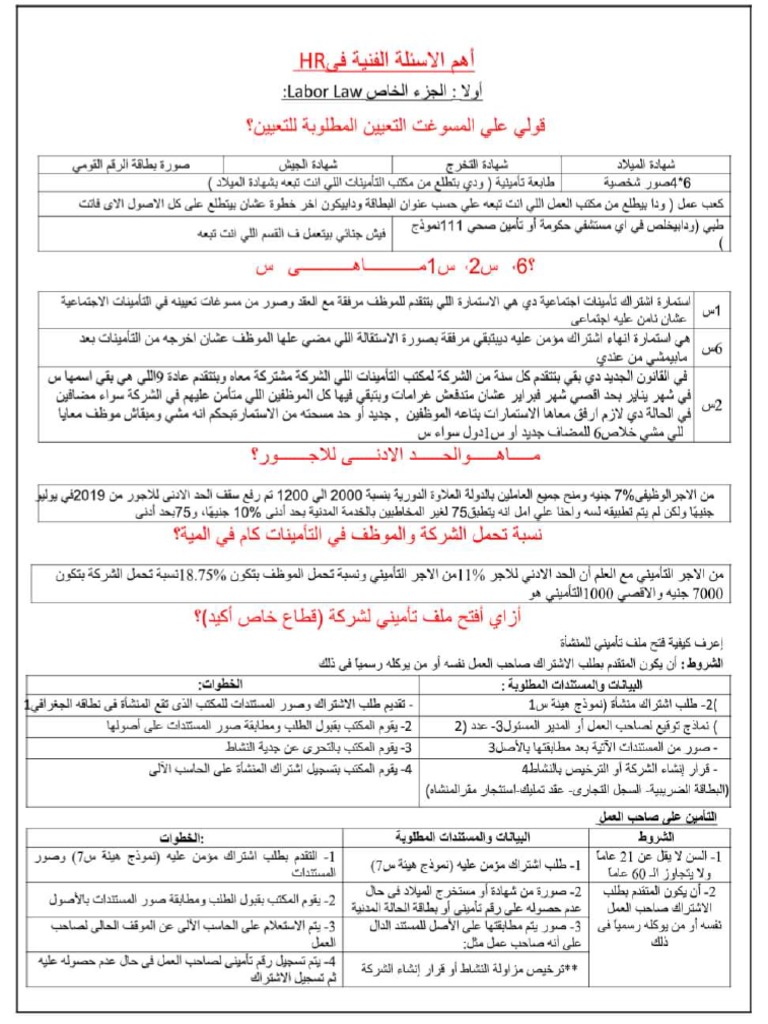 أهم الاسئلة الفنية فىHR
أولا : الجزء الخاص Labor Law:
قولي علي المسوغت التعيين المطلوبة للتعيين؟
شهادة الميلاد شهادة التخرج شهادة الجيش صورة بطاقة الرقم القومي
6*4صور شخصية طابعة تأمينية ( ودي بتطلع من مكتب التأمينات اللي انت تبعه بشهادة الميلاد )
كعب عمل ( ودا بيطلع من مكتب العمل اللي انت تبعه علي حسب عنوان البطاقة ودابيكون اخر خطوة عشان بيتطلع على كل الاصول الاى فاتت
طبي (ودابيخلص في اي مستشفي حكومة أو تأمين صحي 111نموذج
)
فيش جنائي بيتعمل ف القسم اللي انت تبعه
؟6، س2، س1مـــــاهـــــــى س
1س
استمارة اشتراك تأمينات اجتماعية دي هي الاستمارة اللي بتتقدم للموظف مرفقة مع العقد وصور من مسوغات تعيينه في التأمينات الاجتماعية
عشان نامن عليه اجتماعى
6س
هي استمارة انهاء اشتراك مؤمن عليه ديبتبقي مرفقة بصورة الاستقالة اللي مضي علها الموظف عشان اخرجه من التأمينات بعد
مابيمشي من عندي
2س
في القانون الجديد دي بقي بتتقدم كل سنة من الشركة لمكتب التأمينات اللي الشركة مشتركة معاه وبتتقدم عادة 9اللي هي بقي اسمها س
في شهر يناير بحد اقصي شهر فبراير عشان متدفعش غرامات وبتبقي فيها كل الموظفين اللي متأمن عليهم في الشركة سواء مضافين
في الحالة دي لازم ارفق معاها الاستمارات بتاعه الموظفين , جديد أو حد مسحته من الاستمارةبحكم انه مشي ومبقاش موظف معايا
للي مشي خلاص6 للمضاف جديد أو س1دول سواء س
مــاهــوالـحــد الادنــى للاجــور؟
من الاجرالوظيفى7% جنيه ومنح جميع العاملين بالدولة العلاوة الدورية بنسبة 2000 الي 1200 تم رفع سقف الحد الادنى للاجور من 2019في يوليو
جنيهًا ولكن لم يتم تطبيقه لسه واحنا علي امل انه يتطبق75 لغير المخاطبين بالخدمة المدنية بحد أدنى 10% جنيهًا، و75بحد أدنى
نسبة تحمل الشركة والموظف في التأمينات كام في المية؟
من الاجر التأميني مع العلم أن الحد الادني للاجر %11من الاجر التأميني ونسبة تحمل الموظف بتكون %18.75نسبة تحمل الشركة بتكون
7000 جنيه والاقصي 1000التأميني هو
أزاي أفتح ملف تأميني لشركة (قطاع خاص أكيد)؟
إعرف كيفية فتح ملف تأميني للمنشأة
الشروط : أن يكون المتقدم بطلب الاشتراك صاحب العمل نفسه أو من يوكله رسمياً فى ذلك
البيانات والمستندات المطلوبة :
)2- طلب اشتراك منشأة (نموذج هيئة س1
) نماذج توقيع لصاحب العمل أو المدير المسئول3- عدد (2
- صور من المستندات الآتية بعد مطابقتها بالأصل3
- قرار إنشاء الشركة أو الترخيص بالنشاط4
(البطاقة الضريبية- السجل التجارى- عقد تمليك-استئجار مقرالمنشاه)
الخطوات:
- تقديم طلب الاشتراك وصور المستندات للمكتب الذى تقع المنشأة فى نطاقه الجغرافي1
2- يقوم المكتب بقبول الطلب ومطابقة صور المستندات على أصولها
3- يقوم المكتب بالتحرى عن جدية النشاط
4- يقوم المكتب بتسجيل اشتراك المنشأة على الحاسب الآلى
التأمين على صاحب العمل
الشروط
1- السن لا يقل عن 21 عاماً
ولا يتجاوز الـ 60 عاماً
2- أن يكون المتقدم بطلب
الاشتراك صاحب العمل
نفسه أو من يوكله رسمياً فى
ذلك
البيانات والمستندات المطلوبة
1- طلب اشتراك مؤمن عليه (نموذج هيئة س7)
2- صورة من شهادة أو مستخرج الميلاد فى حال
عدم حصوله على رقم تأمينى أو بطاقة الحالة المدنية
3- صور يتم مطابقتها على الأصل للمستند الدال
على أنه صاحب عمل مثل:
**ترخيص مزاولة النشاط أو قرار إنشاء الشركة
:الخطوات
1- التقدم بطلب اشتراك مؤمن عليه (نموذج هيئة س7) وصور
المستندات
2- يقوم المكتب بقبول الطلب ومطابقة صور المستندات بالأصول
3- يتم الاستعلام على الحاسب الآلى عن الموقف الحالى لصاحب
العمل
4- يتم تسجيل رقم تأمينى لصاحب العمل فى حال عدم حصوله عليه
ثم تسجيل الاشتراك